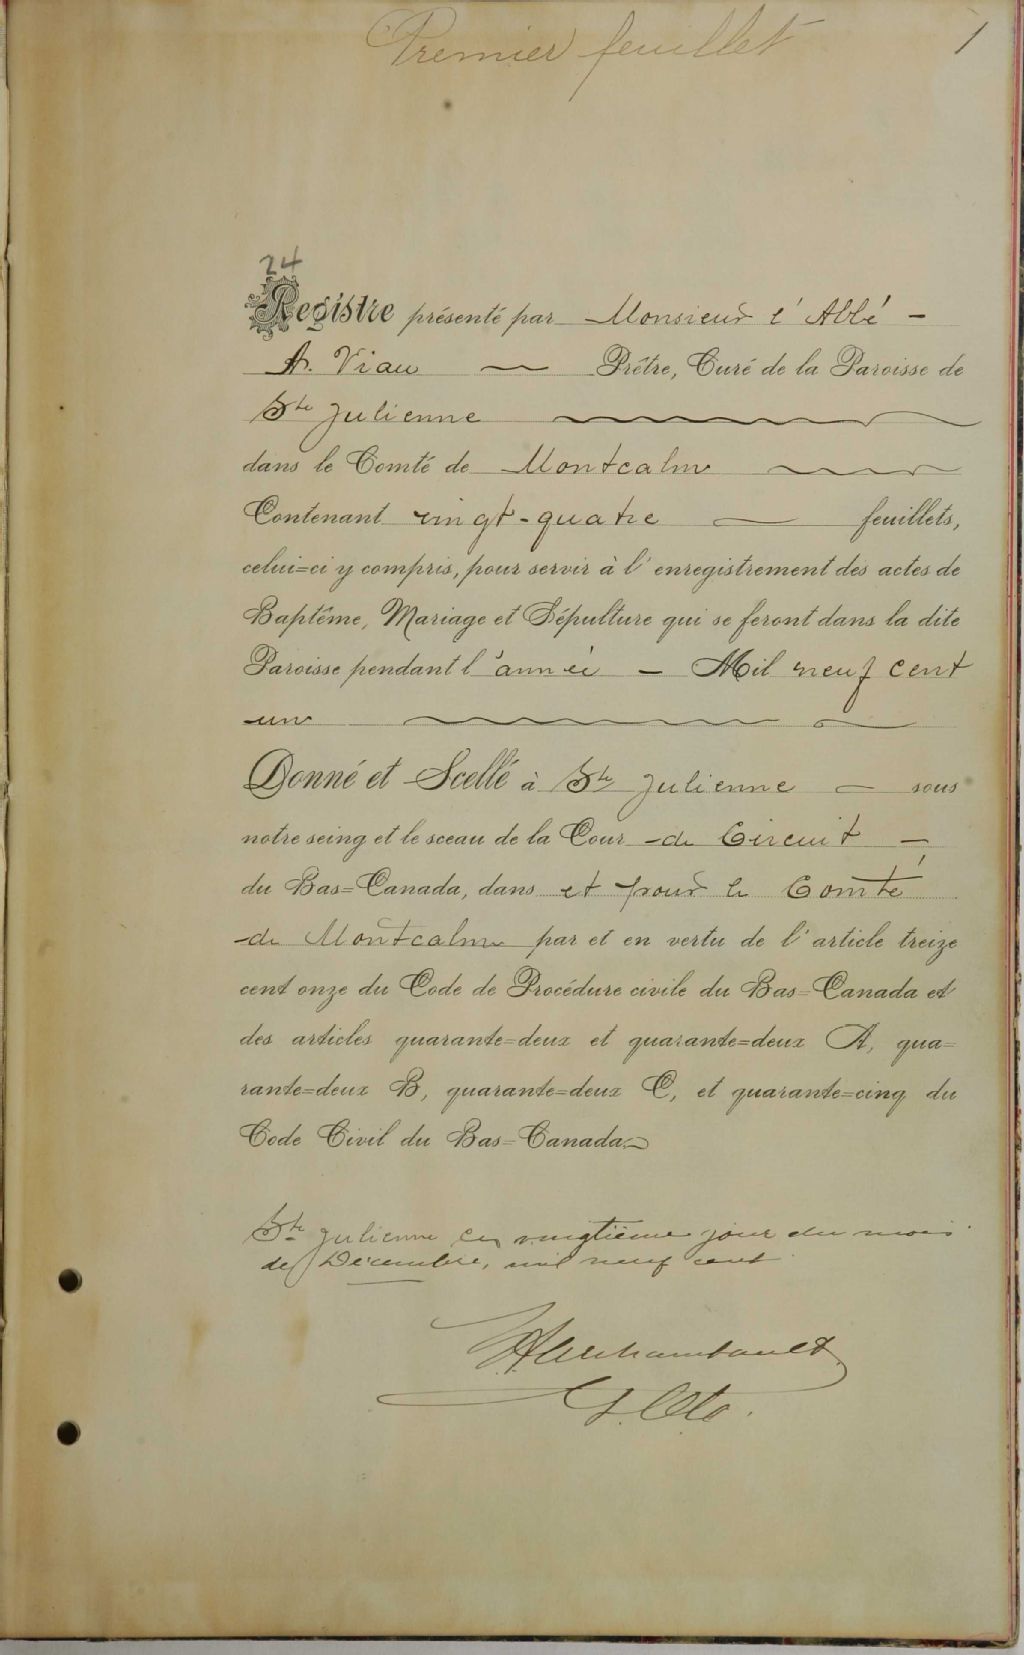 Premier feuillet 1
24
Registre présenté par Monsieur l'Abbé -
A. Viau — Prêtre, Curé de la Paroisse de
Ste Julienne
dans le Comté de Montcalm
Contenant vingt-quatre — feuillets,
celui=ci y compris, pour servir à l'enregistrement des actes de
Baptême, Mariage et Sépulture qui se feront dans la dite
Paroisse pendant l'année — Mil neuf cent
un
Donné et Scellé à Ste Julienne — sous
notre seing et le sceau de la Cour de Circuit —
du Bas=Canada, dans et pour le Comté
de Montcalm par et en vertu de l'article treize
cent onze du Code de Procédure civile du Bas=Canada et
des articles quarante=deux et quarante=deux A, qua=
rante=deux B, quarante=deux C, et quarante=cinq du
Code Civil du Bas=Canada.
Ste Julienne ce vingtième jour du mois
de Décembre, mil neuf cent
Archambault